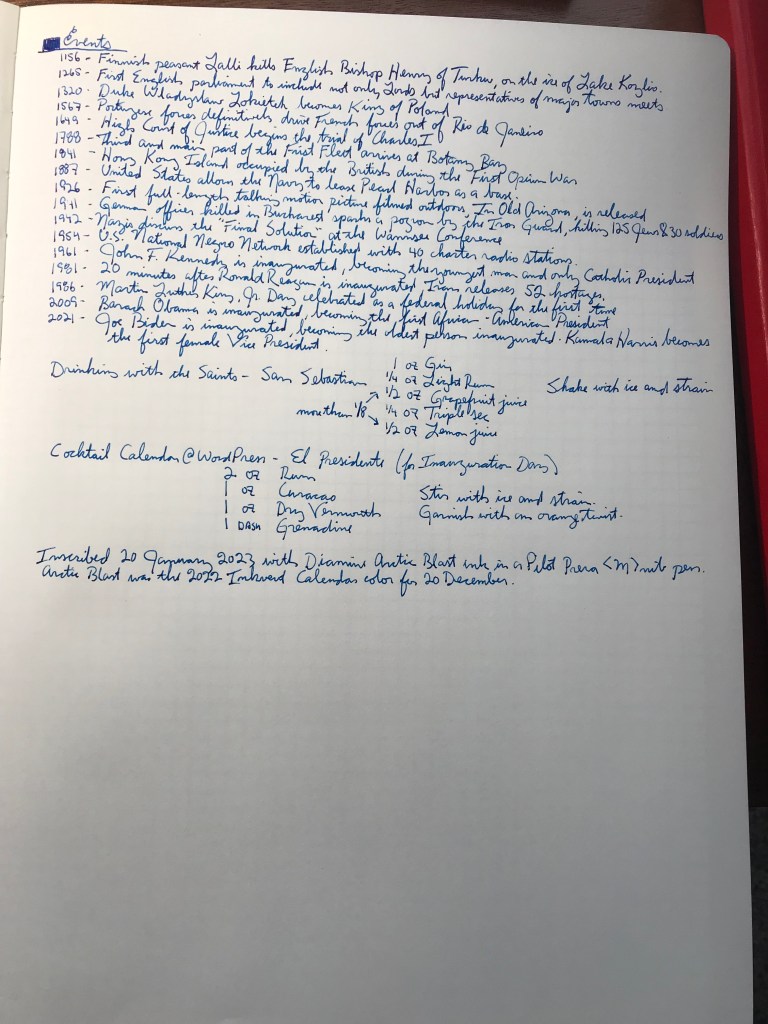 Events
1156 - Finnish peasant Lalli kills English Bishop Henry of Turku, on the ice of Lake Köyliö.
1265 - First English parliament to include not only Lords but representatives of major towns meets
1320 - Duke Wladyslaw Lokietek becomes King of Poland
1567 - Portugese forces definitively drive French forces out of Rio de Janeiro
1649 - High Court of Justice begins the trial of Charles I
1788 - Third and main part of the First Fleet arrives at Botany Bay
1841 - Hong Kong Island occupied by the British during the First Opium War
1887 - United States allows the Navy to lease Pearl Harbor as a base.
1926 - First full-length talking motion picture filmed outdoors, In Old Arizona, is released
1941 - German officer killed in Bucharest sparks a pogrom by the Iron Guard, killing 125 Jews & 30 soldiers
1942 - Nazis discuss the "Final Solution" at the Wannsee Conference
1954 - U.S. National Negro Network established with 40 charter radio stations.
1961 - John F. Kennedy is inaugurated, becoming the youngest man and only Catholic President
1981 - 20 minutes after Ronald Reagan is inaugurated Iran releases 52 hostages.
1986 - Martin Luther King, Jr. Day celebrated as a federal holiday for the first time
2009 - Barack Obama is inaugurated, becoming the first African-American President
2021 - Joe Biden is inaugurated, becoming the oldest person inaugurated. Kamala Harris becomes
the first female Vice President.
Drinking with the Saints - San Sebastian
1 oz Gin
1/4 oz Light Rum
1/2 oz Grapefruit juice
1/4 oz Triple sec
1/2 oz Lemon juice
more than 1/8
Shake with ice and strain
Cocktail Calendar @ WordPress - El Presidente (for Inauguration Day)
2 oz Rum
1 oz Curacao
1 oz Dry Vermouth
1 DASH Grenadine
Stir with ice and strain.
Garnish with an orange twist.
Inscribed 20 January 2023 with Diamine Arctic Blast ink in a Pilot Prera <M> nib pen.
Arctic Blast was the 2022 Inkvent Calendar color for 20 December.